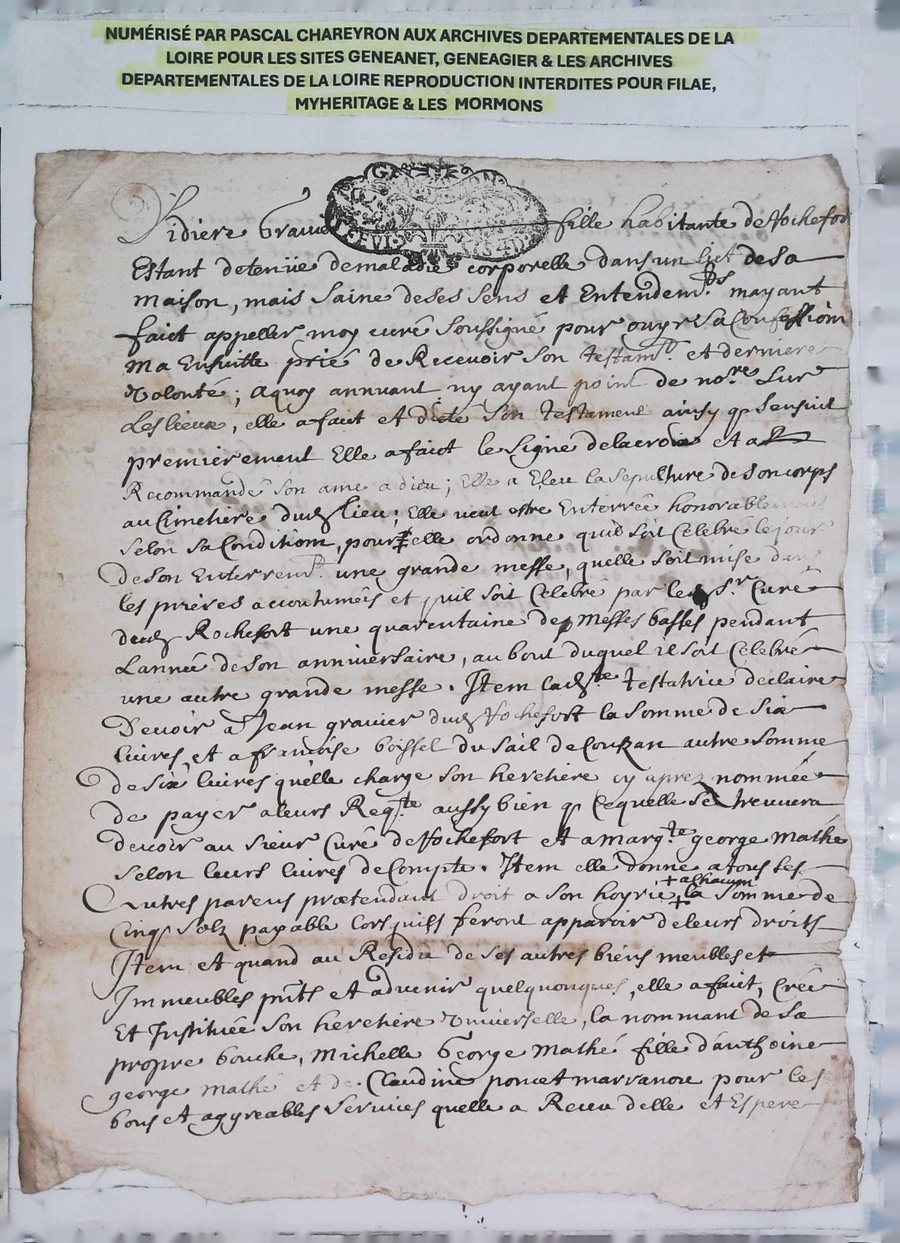 NUMÉRISÉ PAR PASCAL CHAREYRON AUX ARCHIVES DEPARTEMENTALES DE LA
LOIRE POUR LES SITES GENEANET, GENEAGIER & LES ARCHIVES
DEPARTEMENTALES DE LA LOIRE REPRODUCTION INTERDITES POUR FILAE,
MYHERITAGE & LES MORMONS
fille habitante de Rochefor
Estant detenüe de maladie corporelle dans un lict de sa
maison, mais saine de ses sens et Entendem.ts mayant
faict appeller moy curé soussigné pour ouyr sa Confession
ma Ensuitte prié de Recevoir son testam.t et derniere
volonté; aquoy annuant ny ayant point de no.re sur
les lieux, elle a faict et dicté son testament ainsy q sensuit
premierement Elle a faict le signe de la croix et a
Recommandé son ame a dieu; Elle a Eleu la sepulture de son corps
au Cimetiere dud lieu; Elle veut estre Enterrée honorablement
selon sa Condition, pour elle ordonne quil soit Celebré le jour
de son Enterrem.t une grande messe, quelle soit mise dans
les prieres accoutumées et quil soit Celebré par le s.r Curé
dud Rochefort une quarentaine de messes basses pendant
Lannée de son anniversaire, au bout duquel il soit Celebré
une autre grande messe. Item lad.te testatrice declaire
Devoir a Jean gravier dud Rochefort la somme de six
livres et a françoise boissel du sail de Couzan autre somme
de six livres quelle charge son heretiere cy aprez nommée
de payer a leurs Req.te aussy bien q Ce quelle se treuvera
devoir au sieur Curé de Rochefort et a marg.te george Mathé
selon leurs livres de Compte. Item elle donne a tous ses
Autres parens prætendant droit a son hoyrie + a chacun + la somme de
Cinq solz payable lors quils feront apparoir de leurs droits
Item et quand au Residu de ses autres biens meubles et
Immeubles pnts et advenir quelquonques, elle a faict, Créé
Et Instituée son heretiere Universelle, la nommant de sa
propre bouche, Michelle George mathé fille d'anthoine
george mathé et de Claudine poncet pour les
bons et aggreables services quelle a Receu delle et Espere